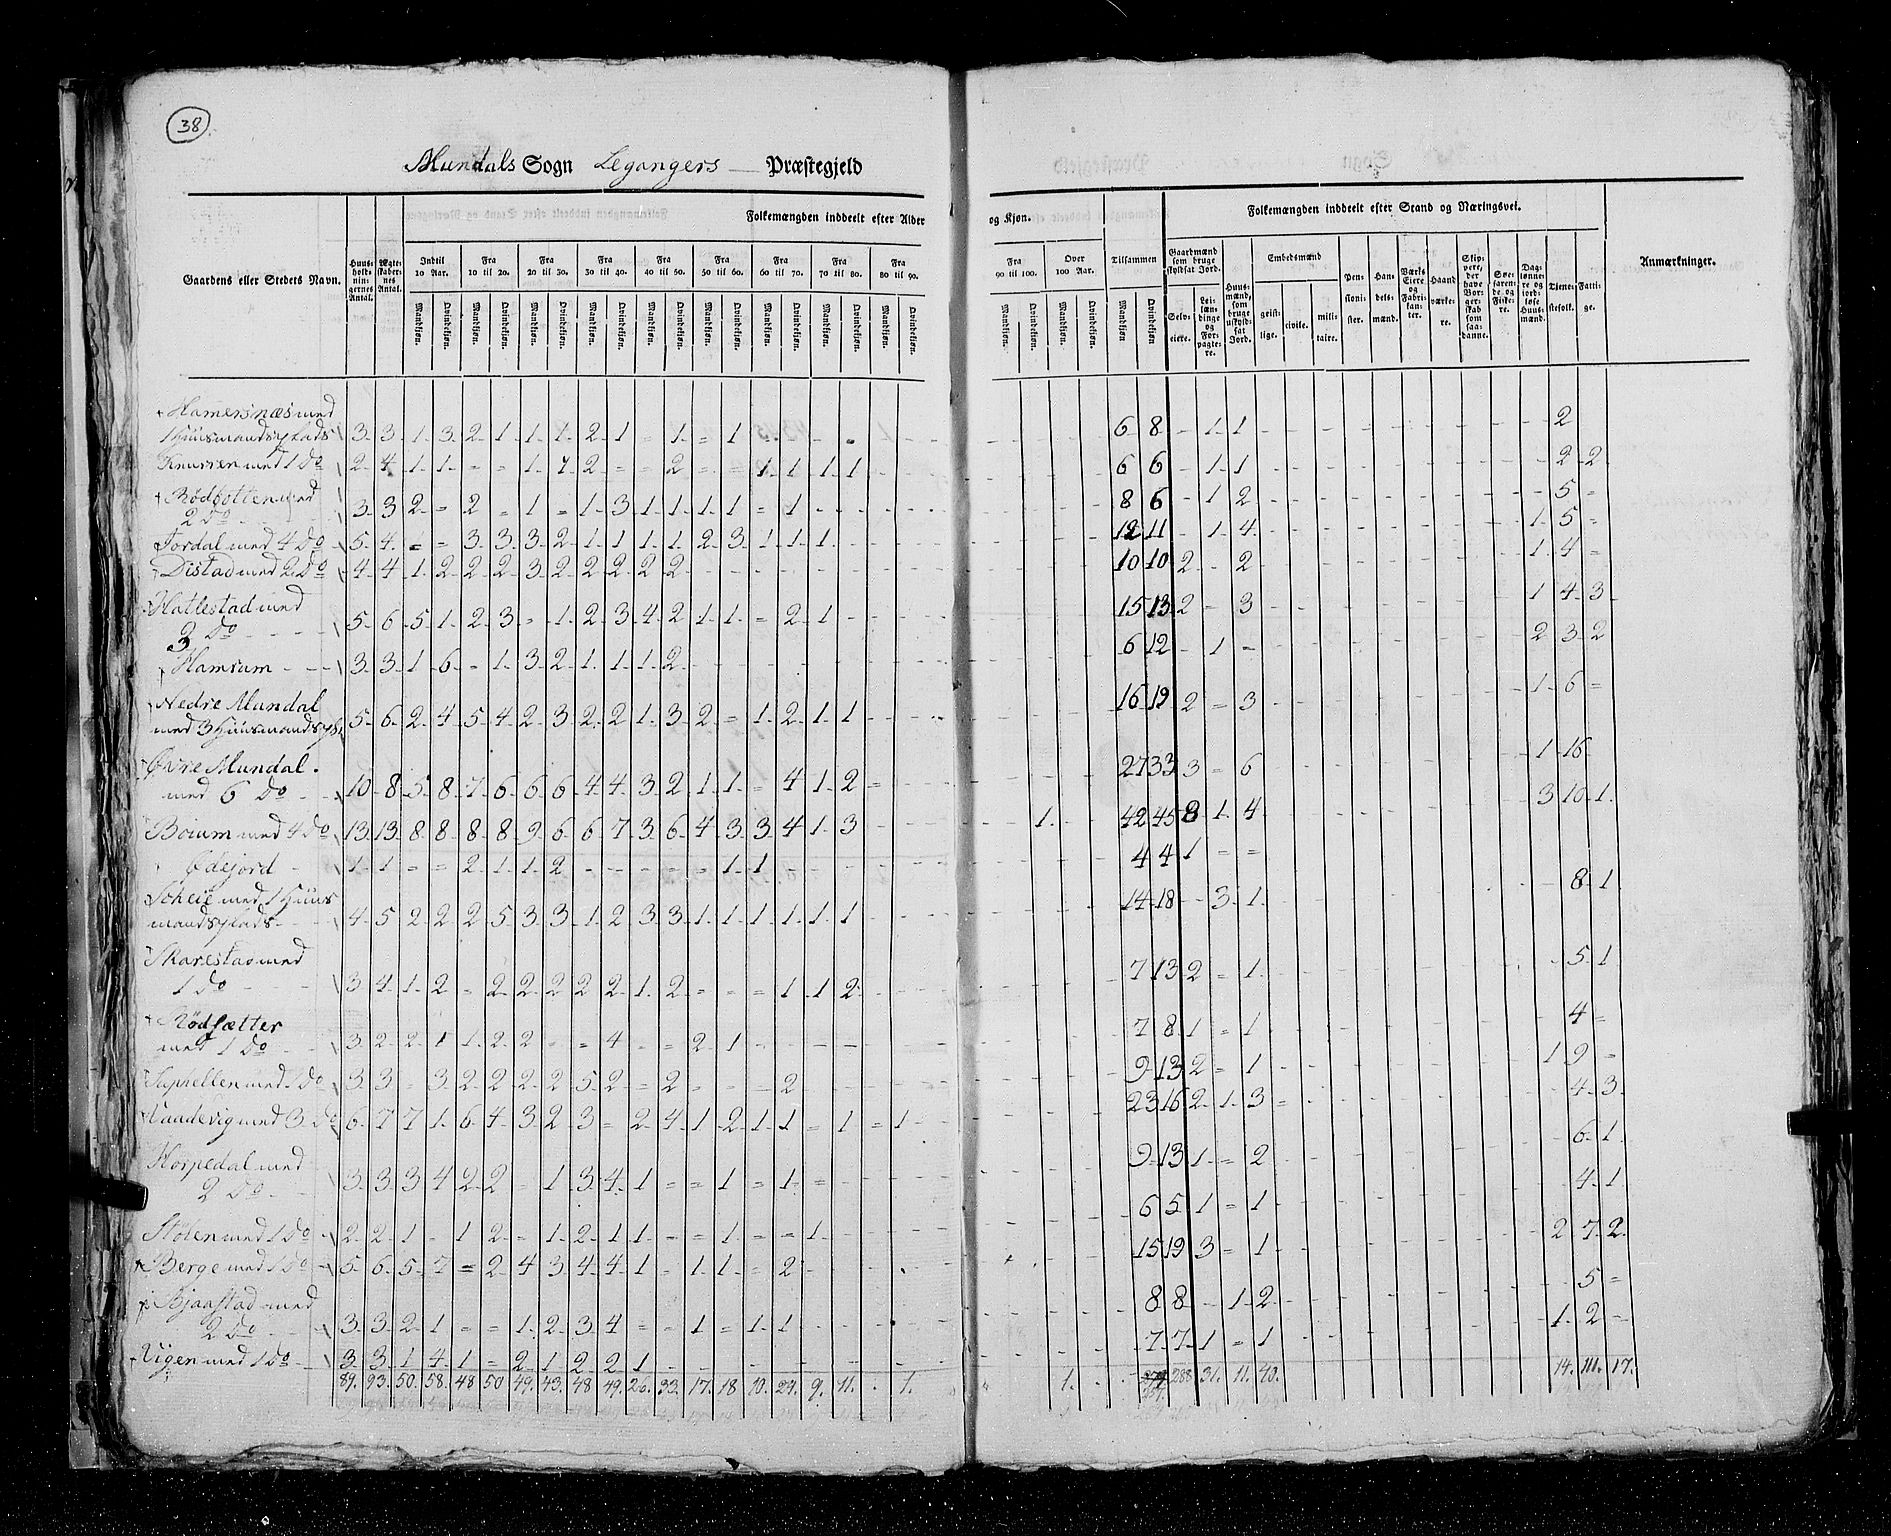 38
Mundals Sogn Legangers — Præstegjeld
Folkemængden inddeelt efter Alder og Kjøn.
Folkemængden inddeelt efter Stand og Næringsvei.
Gaardens eller Stedets Navn.
Huusholdningernes Antal.
Ægteskabernes Antal.
Indtil 10 Aar.
Fra 10 til 20.
Fra 20 til 30.
Fra 30 til 40.
Fra 40 til 50.
Fra 50 til 60.
Fra 60 til 70.
Fra 70 til 80.
Fra 80 til 90.
Fra 90 til 100.
Over 100 Aar.
Tilsammen
Mandkjøn. Qvindekjøn.
Gaardmænd som bruge skyldsat Jord.
Selveiere.
Leilændinge og Forpagtere.
Huusmænd, som bruge uskyldsat Jord.
Embedsmænd
geistlige. civile. militaire.
Pensionister.
Handelsmænd.
Værks Eiere og Fabrikanter.
Haandværkere.
Skippere, der have Borgerskab som saadanne.
Søefarende og Fiskere.
Daglønnere og jordløse Huusmænd.
Tjenestefolk.
Fattige.
Anmærkninger.
Hamersnæs med
1 Huusmandsplads 3 3 1 3 2 1 1 1 2 1 = 1 = 1 6 8 - 1 1 2
Knurren med 1 Do 2 4 1 1 = = 1 1 2 = = 2 = = 1 1 1 1 6 6 - 1 1 2 2
Rødbotten med
2 Do 3 3 2 = 2 = 1 = 1 3 1 1 1 1 = 1 8 6 - 1 2 5 =
Jordal med 4 Do 5 4 = = 3 3 3 2 1 1 1 1 2 3 1 1 1 12 11 - 1 4 1 5 =
Distad med 2 Do 4 4 1 2 2 2 3 2 2 2 2 2 10 10 2 - 2 1 4 =
Hatlestad med
3 Do 5 6 5 1 2 3 = 1 2 3 4 2 1 1 = 2 1 15 13 2 = 3 1 4 3
Hamrum 3 3 1 6 = 1 3 2 1 1 1 2 6 12 - 1 = 2 3 2
Nedre Mundal
med 3 Huusmandspl. 5 6 2 4 5 4 2 3 2 2 1 3 2 = 1 2 1 1 16 19 2 = 3 1 6 =
Øvre Mundal
med 6 Do 10 8 5 8 7 6 6 6 4 4 3 2 1 1 = 4 1 2 27 33 3 = 6 1 16
Boium med 4 Do 13 13 8 8 8 8 9 6 6 7 3 6 4 3 3 4 1 3 1 42 45 8 1 4 3 10 1
Ødejord 1 1 = = 2 1 1 2 1 1 4 4 1 = =
Scheie med 1 Huus
mandsplads 4 5 2 2 2 5 3 3 1 2 3 3 1 1 1 1 1 1 14 18 - 3 1 8 1
Skarestad med
1 Do 3 4 1 2 = 2 2 2 2 2 1 2 = = = 1 1 2 7 13 2 = 1 5 1
Rødsætter
med 1 Do 3 2 2 1 1 2 2 = = 4 = = 2 1 7 8 1 = 1 4 =
Suphellen med 1 Do 3 3 = 3 2 2 2 2 5 2 = 2 = = = 2 9 13 2 = 1 1 9 =
Vaadevig med 3 Do 6 7 7 1 6 4 3 2 3 = 2 4 1 2 1 1 = 1 = 1 23 16 2 1 3 4 3
Horpedal med
2 Do 3 3 3 4 2 2 = 1 3 4 1 = = 1 = 1 = 9 13 1 = 2 6 1
Stølen med 1 Do 2 2 1 = 1 2 = 1 2 1 1 = = 1 = = 1 6 5 1 = 1 4 1
Berge med 1 Do 5 6 5 7 = 2 4 3 4 4 1 = 1 1 = 2 15 19 3 = 1 2 7 2
Bjaastad med
2 Do 3 3 2 1 = = 1 2 3 4 = = 1 = 1 1 8 8 - 1 2 5 =
Vigen med 1 Do 3 3 1 4 1 = 2 1 2 2 1 7 7 1 = 1 1 2 =
89. 93. 50. 58. 48 50 49. 43. 48 49. 26. 33. 17. 18 10. 24. 9. 11. 1. 1. 288 31. 11. 40. 14. 111. 17.